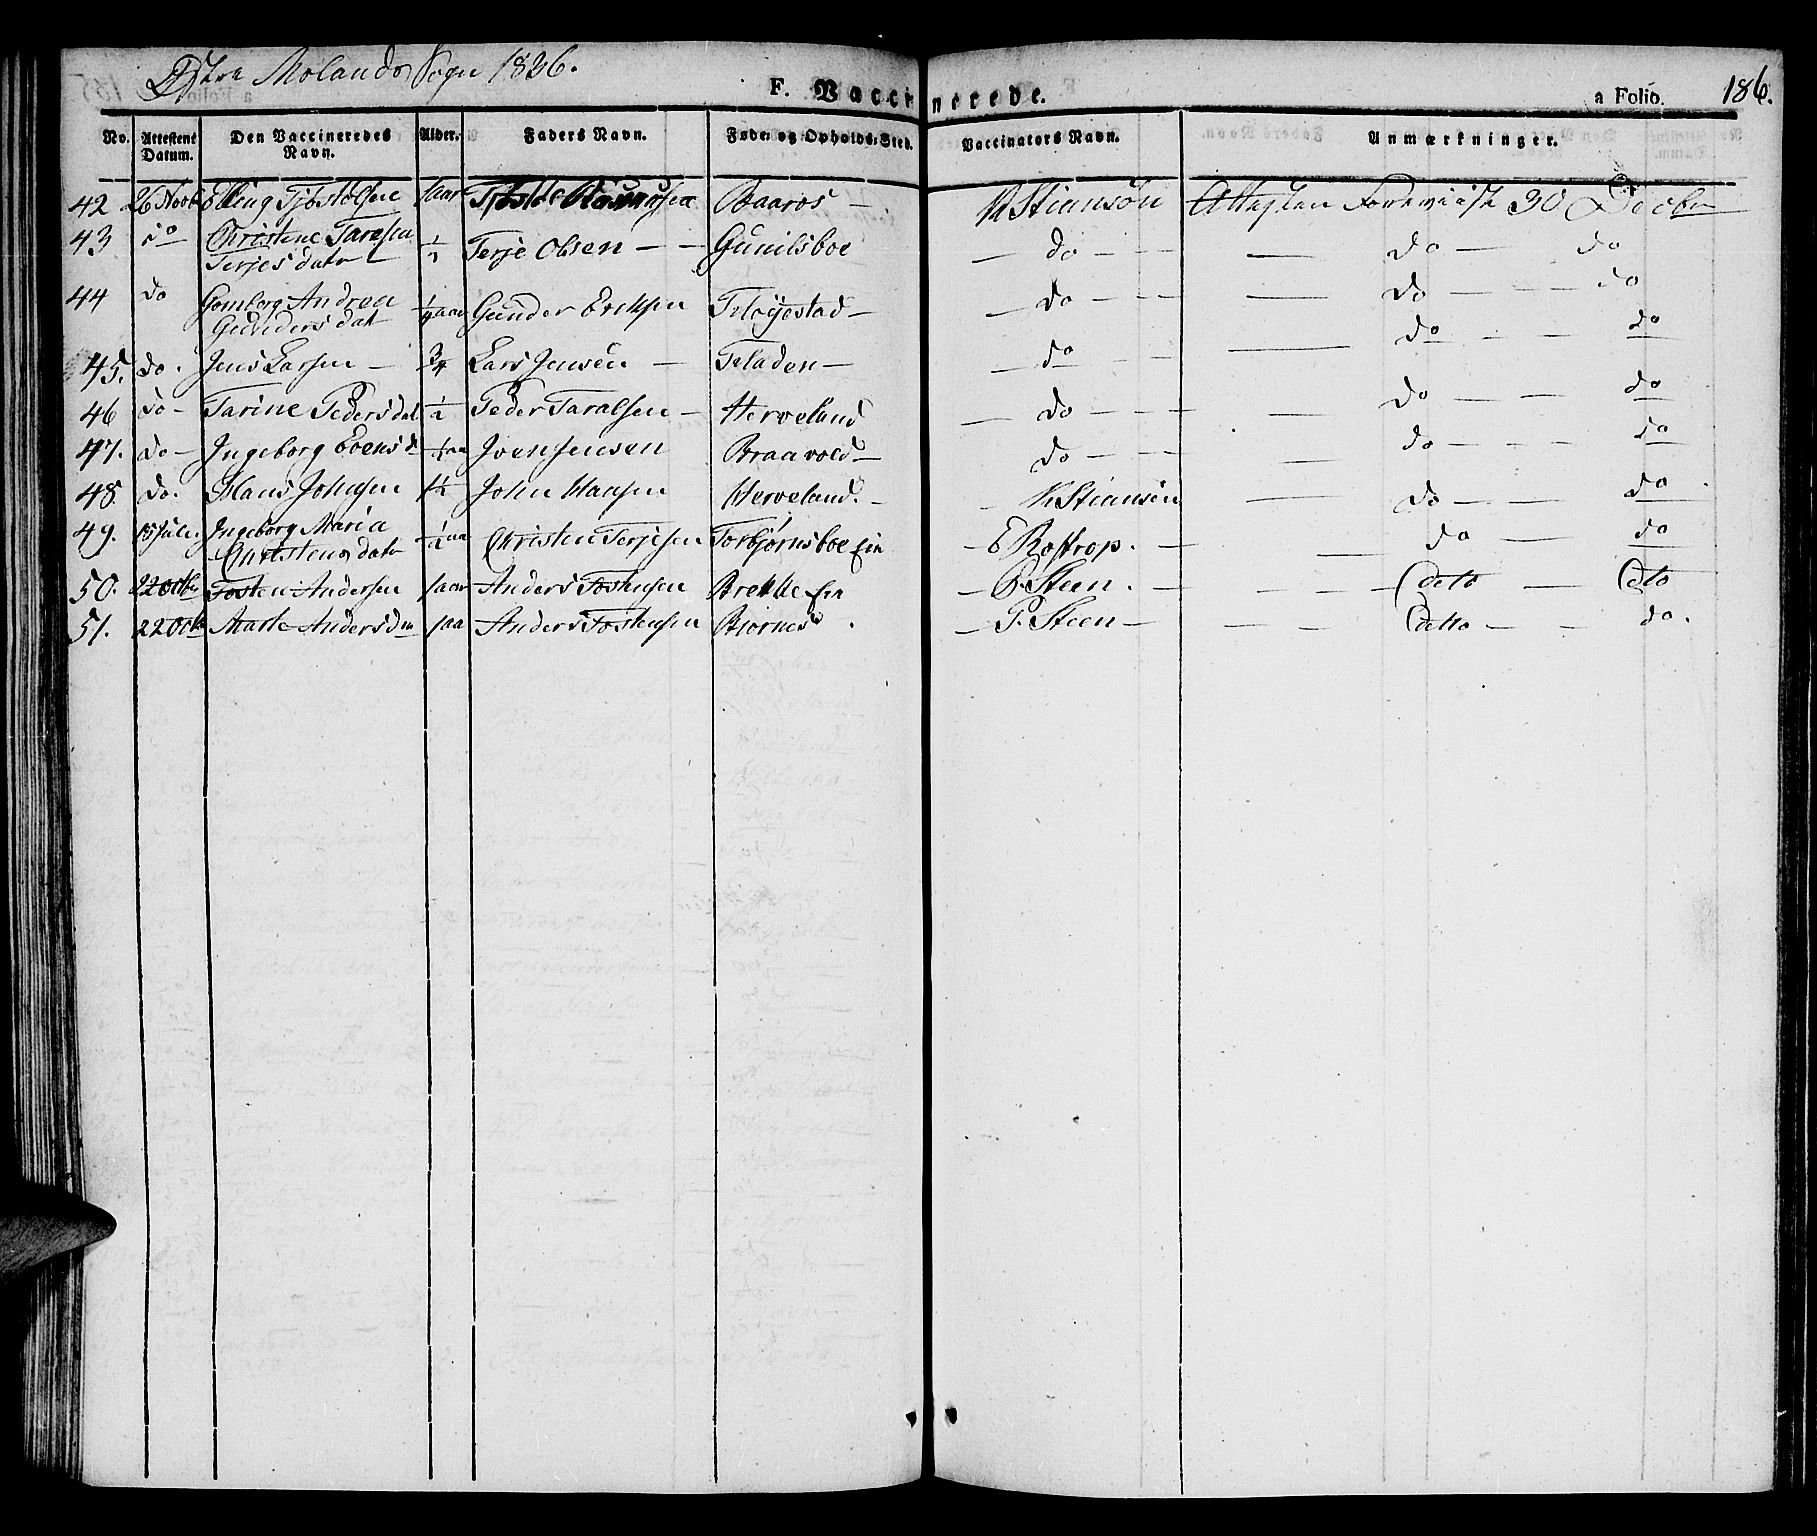 Østre Molands Sogn 1836.
F. Vaccinerede.
a Folio. 186.
No. Attestens Datum. Den Vaccineredes Navn. Alder. Faders Navn. Føde- og Opholds-Sted. Vaccinators Navn. Anmærkninger.
42 26 Novb Elling Tjøstolsen 1 aar Tjøstol Baaros — KStiansøn Attesten Foreviist 30 Decbr
43 do Christine Terjesdatr Terje Olsen — — Gunilsboe — do — — — do — do
44 do Gomborg Andrea Gundersdat 1/4 aar Gunder Ericksen Fløyestad — — do — — — do — — do
45. do. Jens Larsen — 3/4 Lars Jensen — Fladen — — do — — — do — — do
46 do — Tarine Pedersdat 1/2 Peder Taralsen — Herveland — do — — — do — — do
47. do — Ingeborg Evensd Even Jensen Braavold — do — — do — — do
48. do. Hans Johnsen 1 1/2 John Hansen Herveland. — — KStiansen — do — do
49. 15 Juli. Ingeborg Maria Christensdatr 1/2 aa Christen Terjesen Torbjørnsboe Ein — E Rostrop. — — do — do
50. 22 Octbr Tosten Andersen 1 aar Anders Tostensen Brekke Ein — P. Steen. — — — — deto — deto
51. 22 Octb Marte Andersd 1 aa Anders Tostensen Bjornes . — P. Steen — — — — detto — — do.